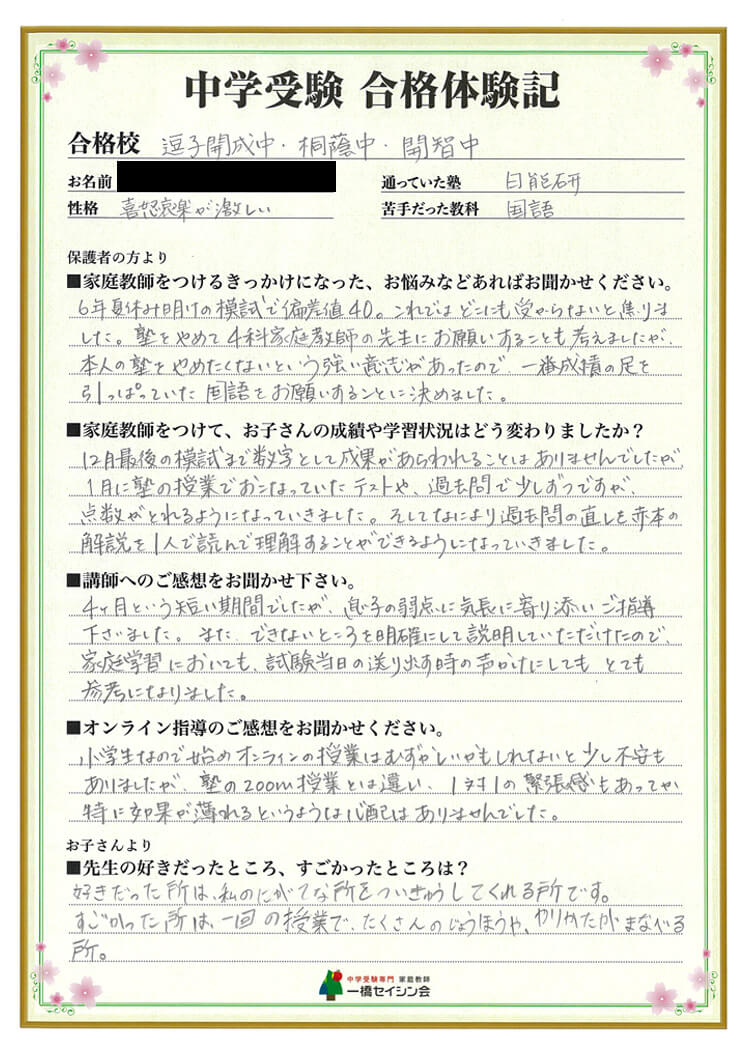 中学受験 合格体験記
合格校 逗子開成中・桐蔭中・開智中
お名前
通っていた塾 日能研
性格 喜怒哀楽が激しい
苦手だった教科 国語
保護者の方より
■家庭教師をつけるきっかけになった、お悩みなどあればお聞かせください。
6年夏休み明けの模試で偏差値40。これではどこにも受からないと焦りま
した。塾をやめて4科家庭教師の先生にお願いすることも考えましたが、
本人の塾をやめたくないという強い意志があったので、一番成積の足を
引っぱっていた国語をお願いすることに決めました。
■家庭教師をつけて、お子さんの成績や学習状況はどう変わりましたか？
12月最後の模試まで数字として成果があらわれることはありませんでしたが、
1月に塾の授業でおこなっていたテストや、過去問で少しずつですが、
点数がとれるようになっていきました。そしてなにより過去問の直しを赤本の
解説を1人で読んで理解することができるようになっていきました。
■講師へのご感想をお聞かせ下さい。
4ヶ月という短い期間でしたが、息子の弱点に気長に寄り添いご指導
下さいました。また、できないところを明確にして説明していただけたので、
家庭学習においても、試験当日の送り出す時の声かけにしてもとても
参考になりました。
■オンライン指導のご感想をお聞かせください。
小学生なので始めオンラインの授業はむずかしいかもしれないと少し不安も
ありましたが、塾のzoom授業とは違い、1対1の緊張感もあってか
特に効果が薄れるというような心配はありませんでした。
お子さんより
■先生の好きだったところ、すごかったところは？
好きだった所は、私のにがてな所をついきゅうしてくれる所です。
すごかった所は、一回の授業で、たくさんのじょうほうや、やりかたがまなべる
所。
中学受験専門 家庭教師
一橋セイシン会